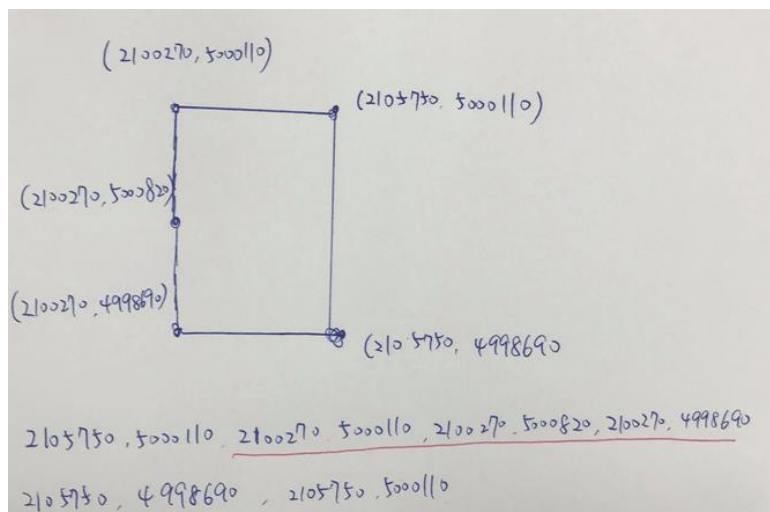 (2100270, 5000110)
(2105750. 5000110)
(2100270, 5000820)
(2100270, 4998690)
(2105750, 4998690
2105750, 5000110 2100270 5000110, 2100270. 5000820, 2100270, 4998690
2105750, 4998690 , 2105750, 5000110